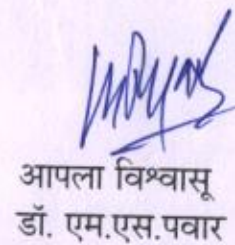 आपला विश्वासू
डॉ. एम.एस.पवार